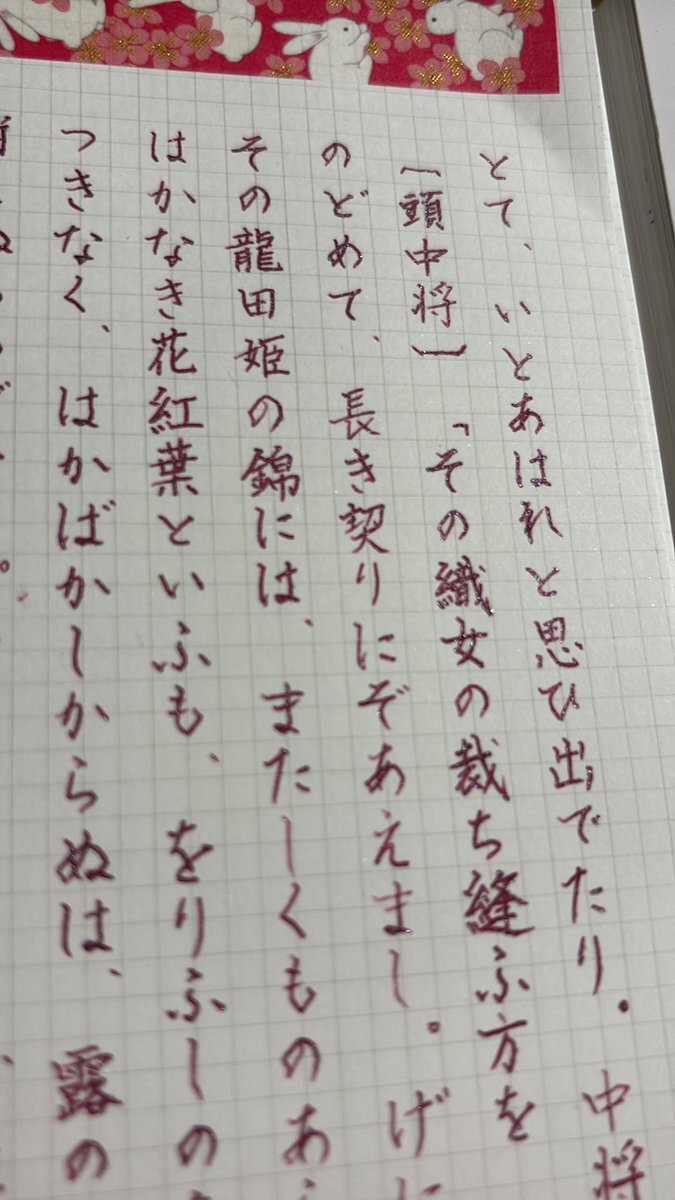 とて、いとあはれと思ひ出でたり。中将
(頭中将)「その織女の裁ち縫ふ方を
のどめて、長き契りにぞあえまし。げに
その龍田姫の錦には、またしくものあ
はかなき花紅葉といふも、をりふしの
つきなく、はかばかしからぬは、露の